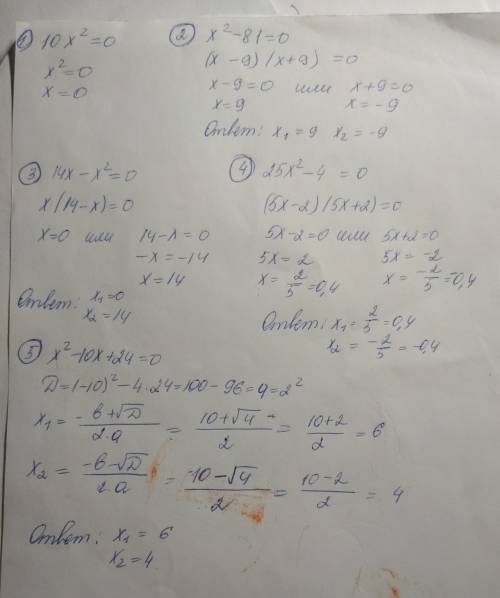 ① 10x²=0
x²=0
x=0
② x²-81=0
(x-9)(x+9)=0
x-9=0 или x+9=0
x=9 x=-9
Ответ: x₁=9 x₂=-9
③ 14x-x²=0
x(14-x)=0
x=0 или 14-x=0
-x=-14
x=14
Ответ: x₁=0
x₂=14
④ 25x²-4=0
(5x-2)(5x+2)=0
5x-2=0 или 5x+2=0
5x=2 5x=-2
x=2/5=0,4 x=-2/5=-0,4
Ответ: x₁=2/5=0,4
x₂=-2/5=-0,4
⑤ x²-10x+24=0
D=(-10)²-4·24=100-96=4=2²
x₁=(-b+√D)/(2·a)=(10+√4)/2=(10+2)/2=6
x₂=(-b-√D)/(2·a)=(10-√4)/2=(10-2)/2=4
Ответ: x₁=6
x₂=4